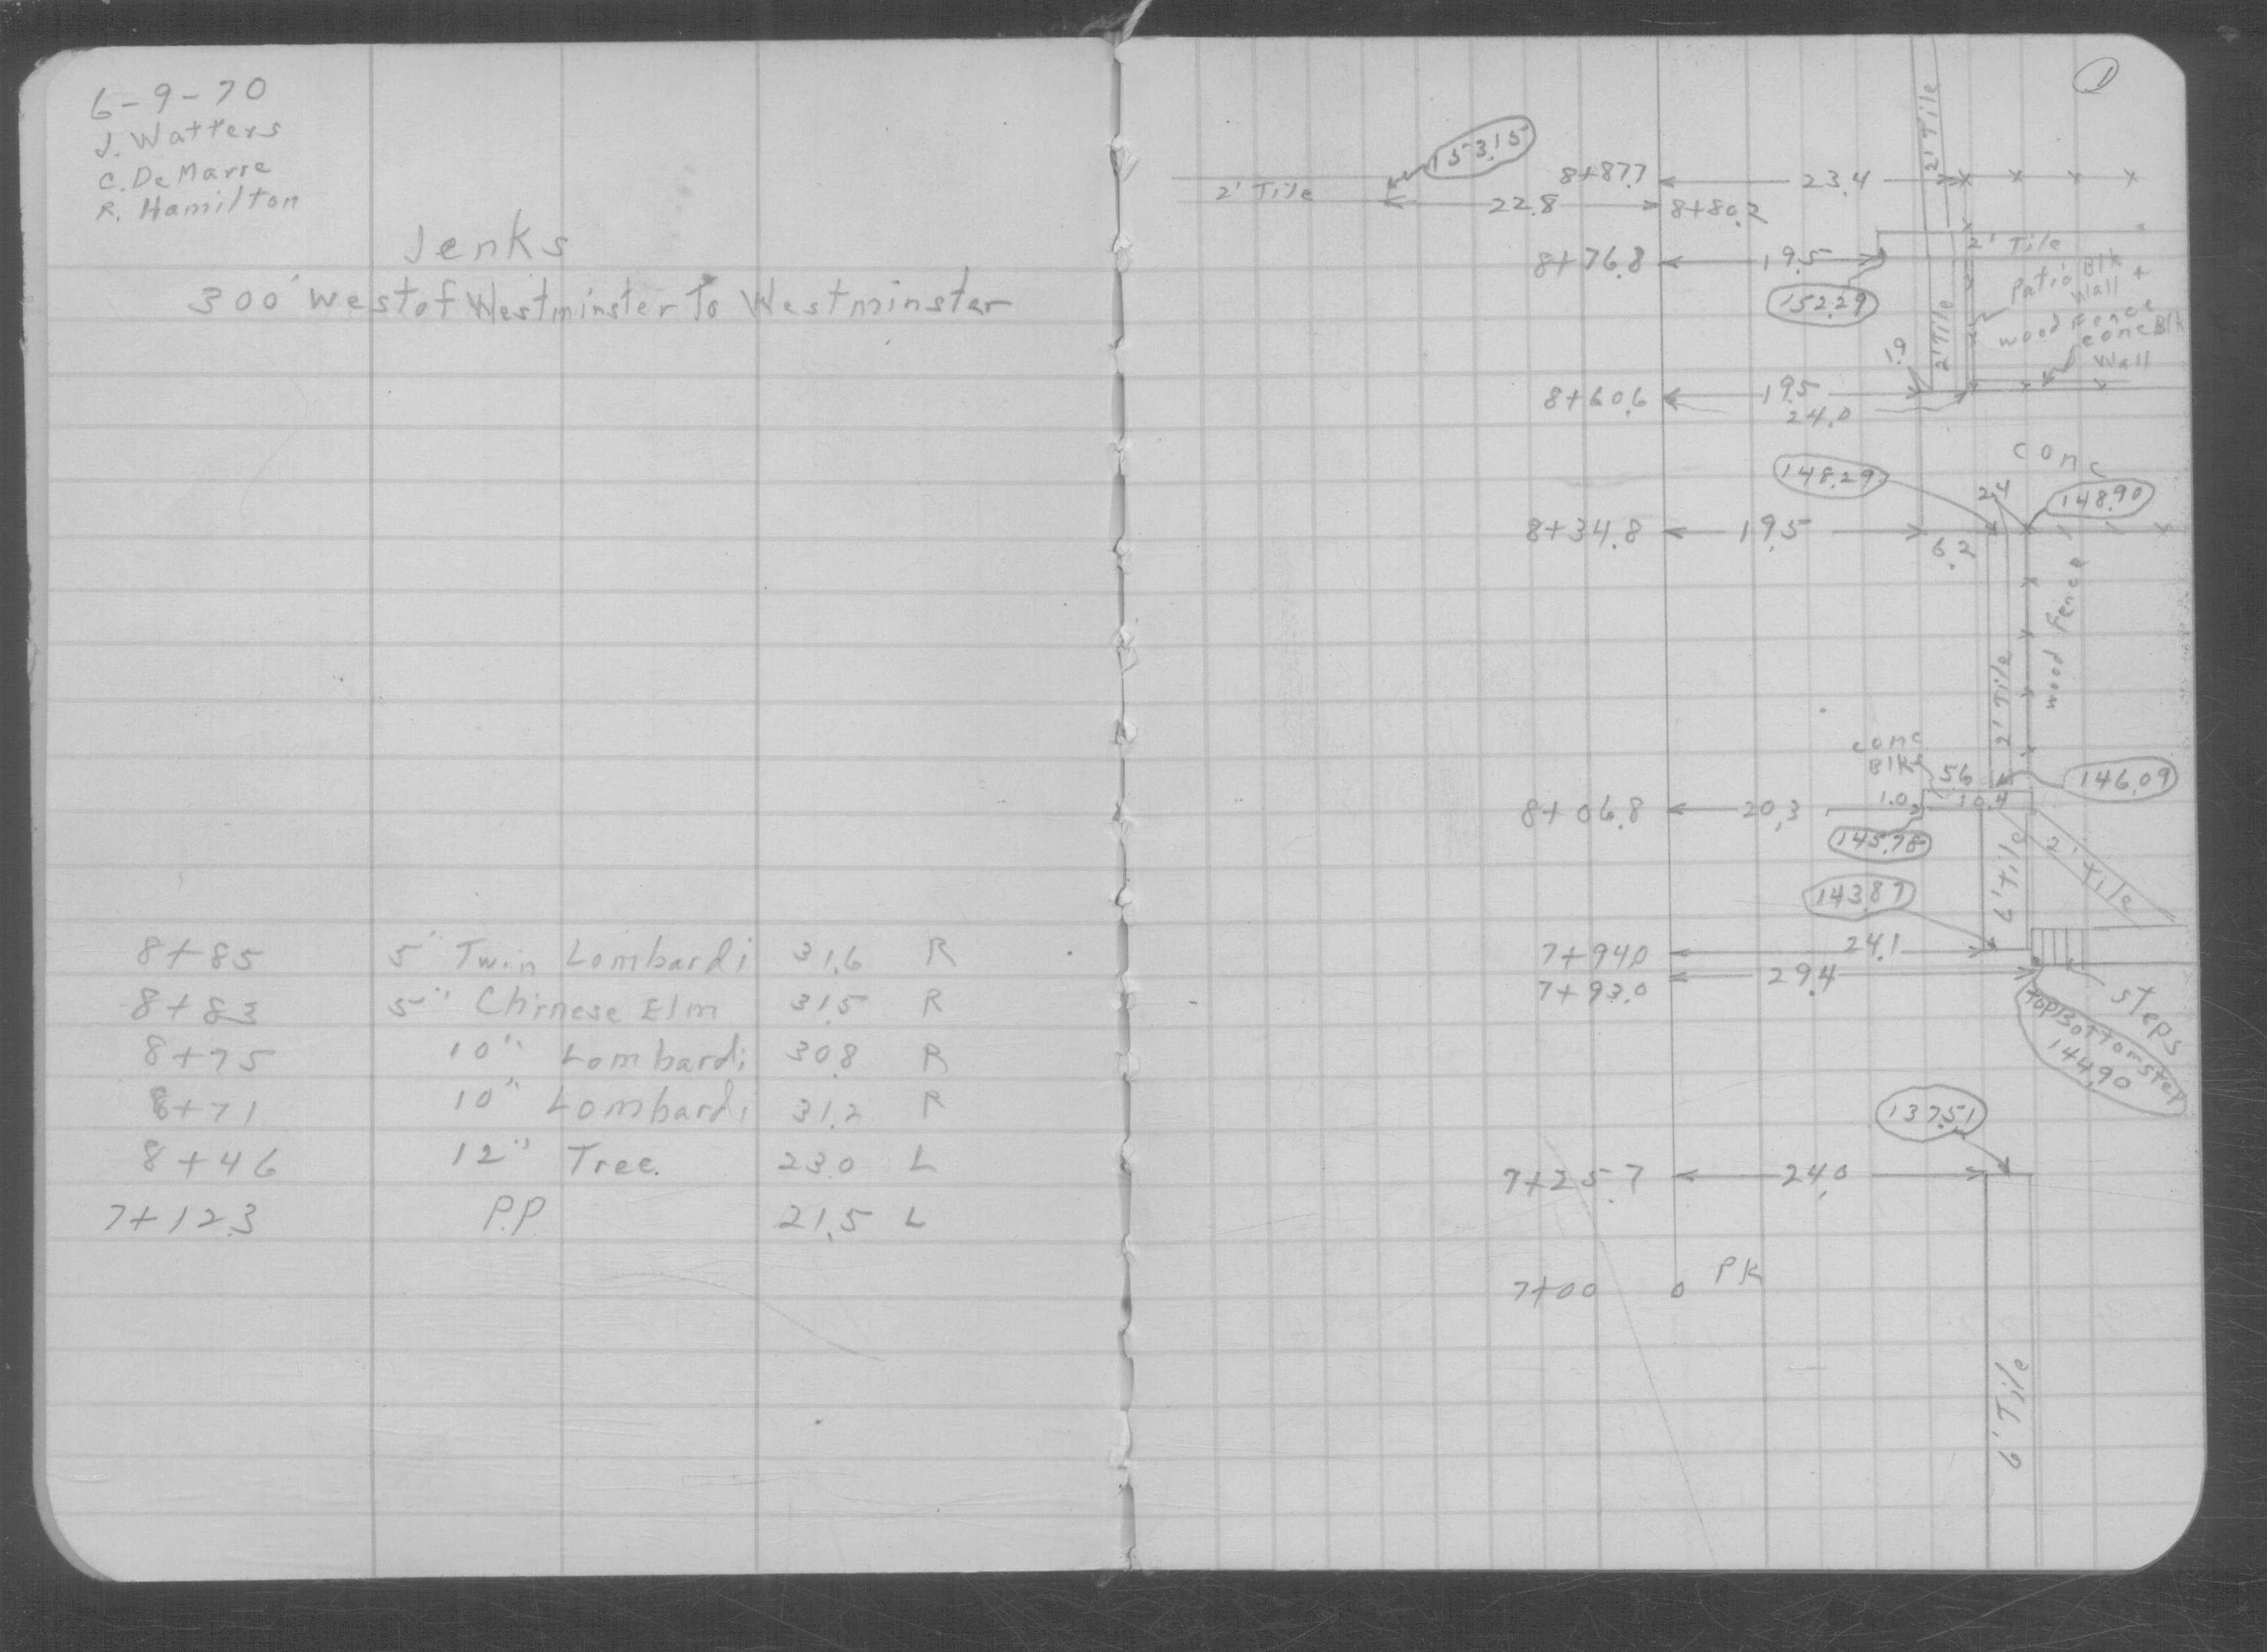 6-9-70
J. Watters
C. DeMarre
R. Hamilton
Jenks
300' West of Westminster To Westminster
8+85 5" Twin Lombardi 31.6 R
8+83 5" Chinese Elm 31.5 R
8+75 10" Lombardi 30.8 R
8+71 10" Lombardi 31.2 R
8+46 12" Tree. 23.0 L
7+12.3 P.P. 21.5 L
1
2' Tile
153.15
8+87.7 23.4
2' Tile 22.8 8+80.2
2' Tile
8+76.8 19.5
Patio Blk
Wall +
wood Fence
152.29
2' Tile
conc Blk
Wall
1.9
8+60.6 19.5
24.0
conc
148.29
2.4
148.90
8+34.8 19.5
6.2
wood Fence
2' Tile
conc
Blk
5.6
146.09
8+06.8 20.3 1.0 10.4
145.78
6' Tile
2' Tile
143.89
7+94.0 24.1
7+93.0 29.4
steps
top Bottom step
144.90
137.51
7+25.7 24.0
7+00 PK
6' Tile